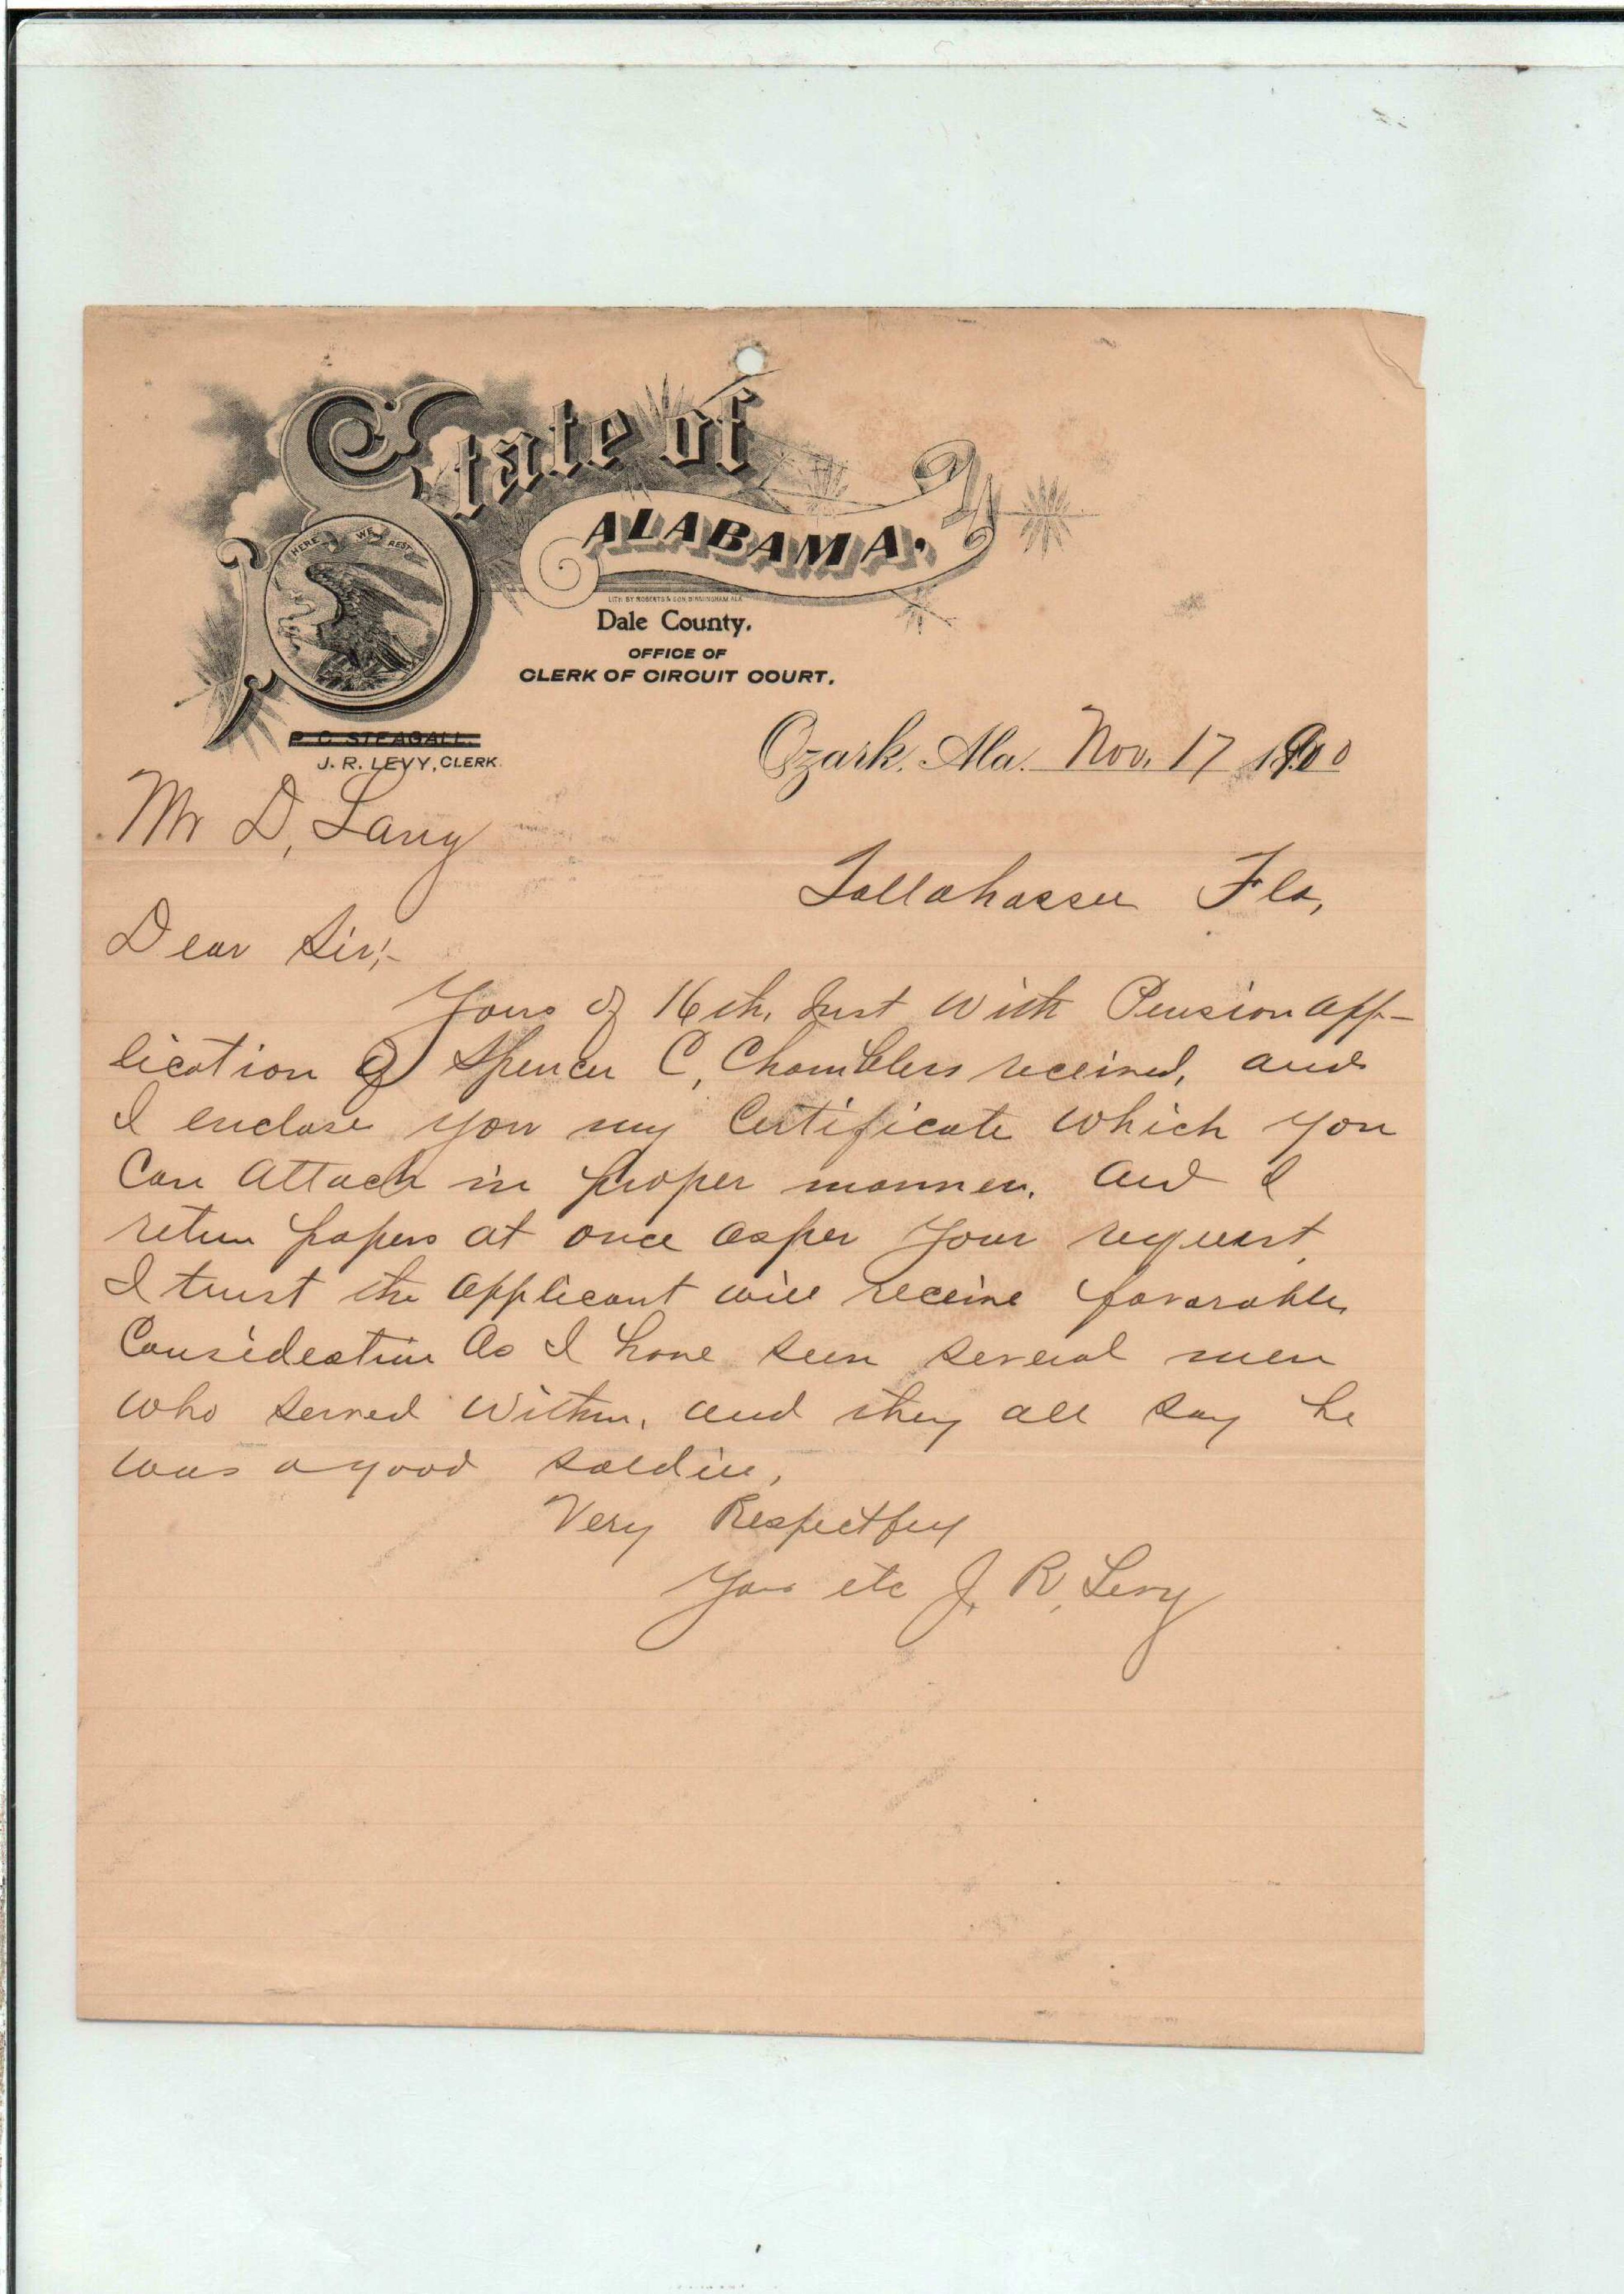 State of
ALABAMA.
HERE WE REST
LITH. BY ROBERTS & SON, BIRMINGHAM, ALA.
Dale County.
OFFICE OF
CLERK OF CIRCUIT COURT.
P. C. STEAGALL.
J. R. LEVY, CLERK.
Ozark, Ala. Nov. 17 1900
Mr D, Lang
Tallahassee Fla,
Dear Sir;-
Yours of 16th, Inst With Pension app-
lication of Spencer C, Chambless received, and
I enclose you my Certificate which you
Can attach in proper manner. and I
return papers at once as per your request
I trust the applicant will receive favorable
Consideration As I have seen several men
who served With him, and they all say he
was a good soldier,
Very Respectfuy
Yours etc J. R, Levy